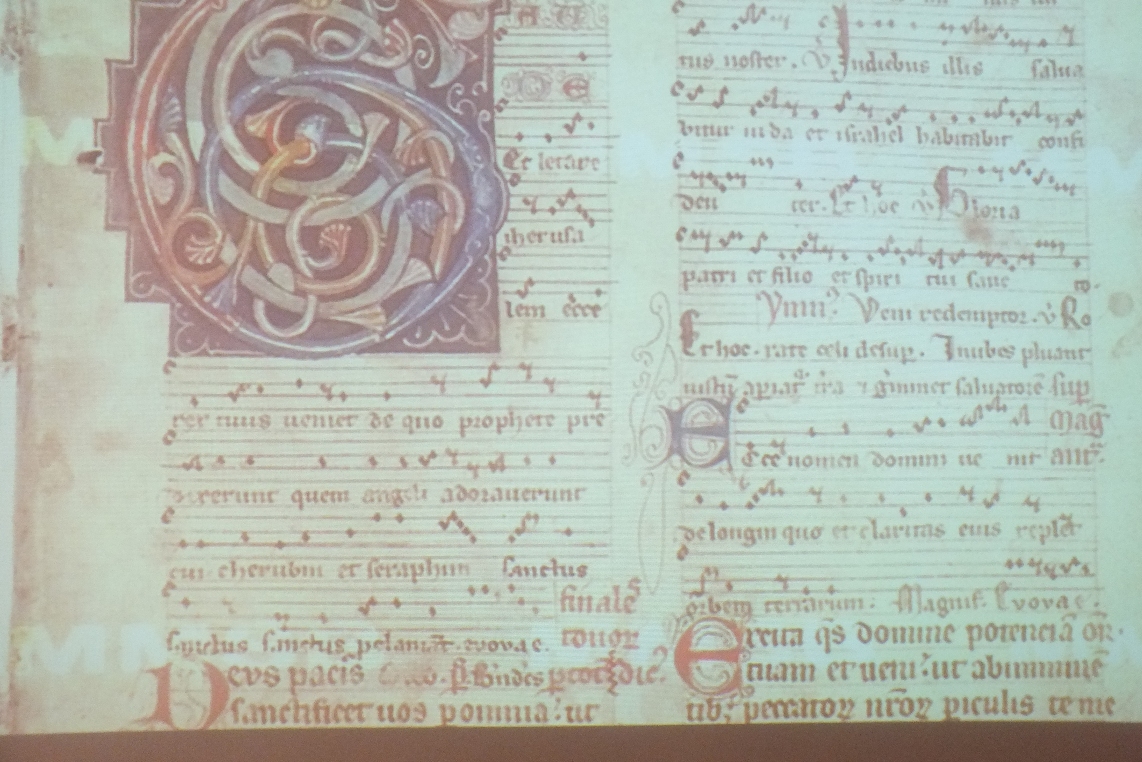 A U
D E
Et letare
iherusa
lem ecce
rex tuus ueniet de quo prophete pre
dixerunt quem angeli adorauerunt
cui cherubin et seraphin sanctus
finales
sanctus sanctus proclamant. evovae.
Deus pacis
sanctificet uos per omnia: ut
tus noster. V Indiebus illis salua
bitur iuda et israhel habitabit confi
den ter. Et hoc V Gloria
patri et filio et spiri tui sanc to.
Veni redemptor. V Ro
Et hoc. rate celi desup. Inubes pluant
iustu apiat tra 7 gminet saluatore sup
Mag
Ecce nomen domini ue nit ant.
delonginquo et claritas eius replet
orbem terrarum. Magnif. Evovae.
Excita qs domine potencia
tuam et ueni: ut abimminē
peccatoꝝ nroꝝ piculis te me